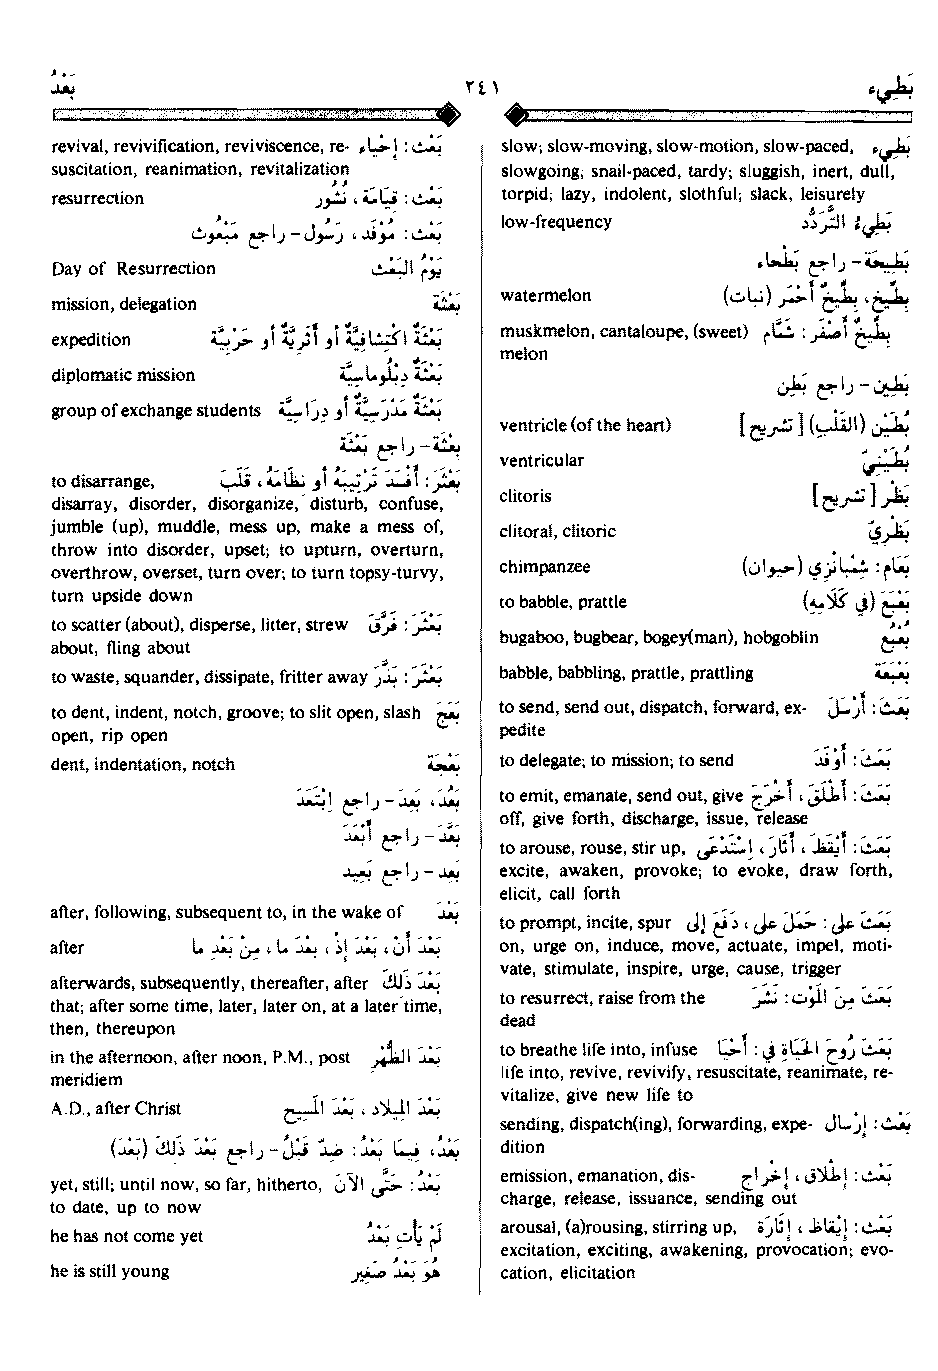 بَطِيء ٢٤١ بَعْدُ
بَطِيء slow; slow-moving, slow-motion, slow-paced,
slowgoing; snail-paced, tardy; sluggish, inert, dull,
torpid; lazy, indolent, slothful; slack, leisurely
بَطِيءُ التَّرَدُّد low-frequency
بَطِيحَة – راجع بَطْحاء
بِطِّيخ، بِطِّيخٌ أَحْمَر (نبات) watermelon
بِطِّيخٌ أَصْفَر : شَمَّام muskmelon, cantaloupe, (sweet)
melon
بَطِين – راجع بَطْن
بُطَيْن (القَلْبِ) [تشريح] ventricle (of the heart)
بُطَيْنِيّ ventricular
بَظْر [تشريح] clitoris
بَظْرِيّ clitoral, clitoric
بَعَام : شِمْبَانْزِي (حيوان) chimpanzee
بَعْبَعَ (في كَلامِهِ) to babble, prattle
بُعْبُع bugaboo, bugbear, bogey(man), hobgoblin
بَعْبَعَة babble, babbling, prattle, prattling
بَعَثَ : أَرْسَلَ to send, send out, dispatch, forward, ex-
pedite
بَعَثَ : أَوْفَدَ to delegate; to mission; to send
بَعَثَ : أَطْلَقَ، أَخْرَجَ to emit, emanate, send out, give
off, give forth, discharge, issue, release
بَعَثَ : أَيْقَظَ، أَثَارَ، إِسْتَدْعَى to arouse, rouse, stir up,
excite, awaken, provoke; to evoke, draw forth,
elicit, call forth
بَعَثَ على : حَمَلَ على، دَفَعَ إلى to prompt, incite, spur
on, urge on, induce, move, actuate, impel, moti-
vate, stimulate, inspire, urge, cause, trigger
بَعَثَ مِنَ المَوْت : نَشَرَ to resurrect, raise from the
dead
بَعَثَ رُوحَ الحَيَاةِ في : أَحْيَا to breathe life into, infuse
life into, revive, revivify, resuscitate, reanimate, re-
vitalize, give new life to
بَعْث : إِرْسال sending, dispatch(ing), forwarding, expe-
dition
بَعْث : إِطْلاق، إِخْراج emission, emanation, dis-
charge, release, issuance, sending out
بَعْث : إِيْقاظ، إِثَارَة arousal, (a)rousing, stirring up,
excitation, exciting, awakening, provocation; evo-
cation, elicitation
بَعْث : إِحْيَاء revival, revivification, reviviscence, re-
suscitation, reanimation, revitalization
بَعْث : قِيَامَة، نُشُور resurrection
بَعْث : مُوْفَد، رَسُول – راجع مَبْعُوث
يَوْمُ البَعْث Day of Resurrection
بَعْثَة mission, delegation
بَعْثَةٌ اكْتِشَافِيَّةٌ أو أَثَرِيَّةٌ أو حَرْبِيَّة expedition
بَعْثَةٌ دِبْلُوماسِيَّة diplomatic mission
بَعْثَةٌ مَدْرَسِيَّةٌ أو دِرَاسِيَّة group of exchange students
بِعْثَة – راجع بَعْثَة
بَعْثَرَ : أَفْسَدَ تَرْتِيبَهُ أو نِظَامَهُ، قَلَبَ to disarrange,
disarray, disorder, disorganize, disturb, confuse,
jumble (up), muddle, mess up, make a mess of,
throw into disorder, upset; to upturn, overturn,
overthrow, overset, turn over; to turn topsy-turvy,
turn upside down
بَعْثَرَ : فَرَّقَ to scatter (about), disperse, litter, strew
about, fling about
بَعْثَرَ : بَذَّرَ to waste, squander, dissipate, fritter away
بَعَجَ to dent, indent, notch, groove; to slit open, slash
open, rip open
بَعْجَة dent, indentation, notch
بَعُدَ، بَعِدَ – راجع اِبْتَعَدَ
بَعَّدَ – راجع أَبْعَدَ
بَعِد – راجع بَعِيد
بَعْدَ after, following, subsequent to, in the wake of
بَعْدَ أَنْ، بَعْدَ إِذْ، بَعْدَ ما، مِنْ بَعْدِ ما after
بَعْدَ ذٰلِكَ afterwards, subsequently, thereafter, after
that; after some time, later, later on, at a later time,
then, thereupon
بَعْدَ الظُّهْرِ in the afternoon, after noon, P.M., post
meridiem
بَعْدَ المِيلاد، بَعْدَ المَسِيح A.D., after Christ
بَعْدُ، فِيمَا بَعْدُ : ضِدّ قَبْلُ – راجع بَعْدَ ذٰلِكَ (بَعْدَ)
بَعْدُ : حَتَّى الآنَ yet, still; until now, so far, hitherto,
to date, up to now
لَمْ يَأْتِ بَعْدُ he has not come yet
هُوَ بَعْدُ صَغِير he is still young